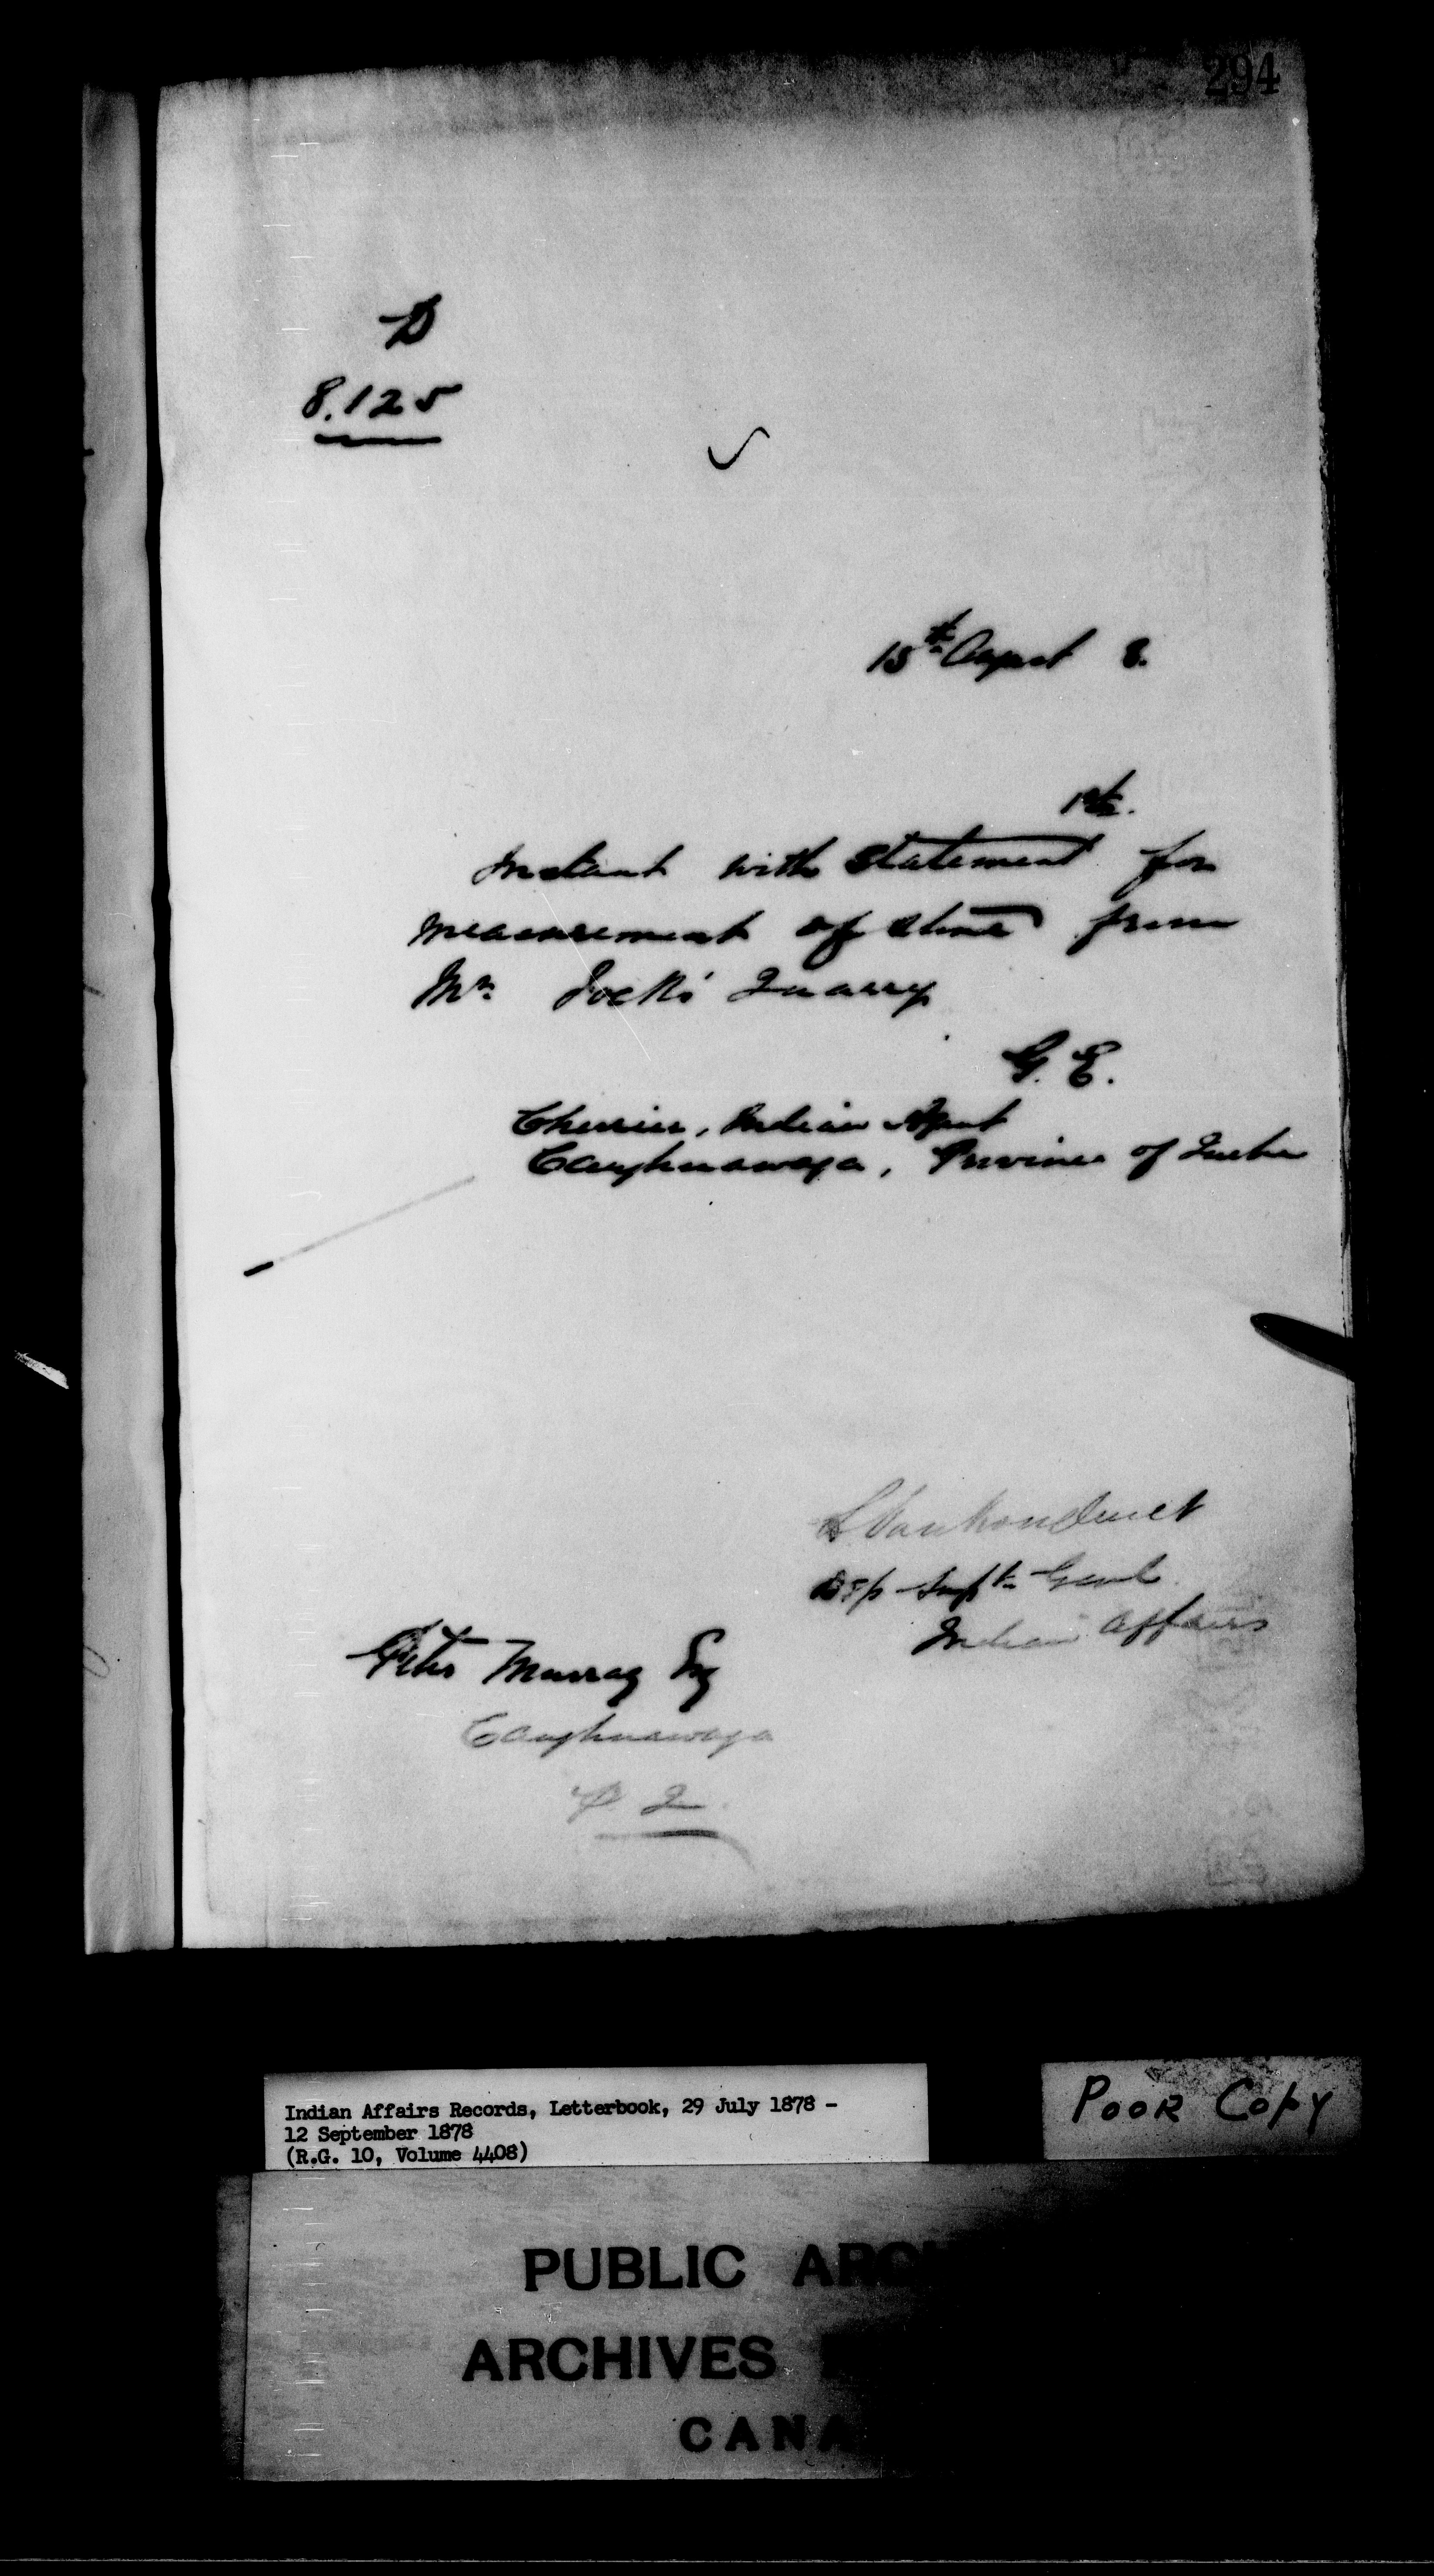 294
D
8.125
15th August 8.
1st.
Instant with Statement for
measurement of stone from
Mr. Jocks' Quarry
G. E.
Cherrier, Indian Agent
Caughnawaga, Province of Quebec
L Vankoughnet
Dep Supt. Genl.
Indian Affairs
Peter Murray Esq
Caughnawaga
P. Q
Indian Affairs Records, Letterbook, 29 July 1878 -
12 September 1878
(R.G. 10, Volume 4408)
POOR COPY
PUBLIC ARC
ARCHIVES
CANA